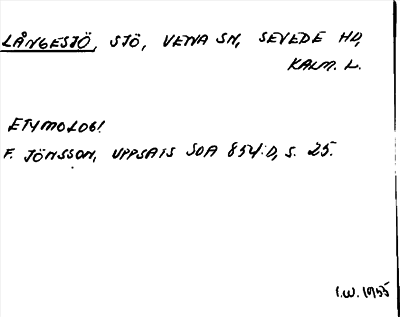 LÅNGESJÖ, SJÖ, VENA SN, SEVEDE HD,
KALM. L.
ETYMOLOGI
F. JÖNSSON, UPPSATS SOA 854:D, S. 25.
I.W. 1955